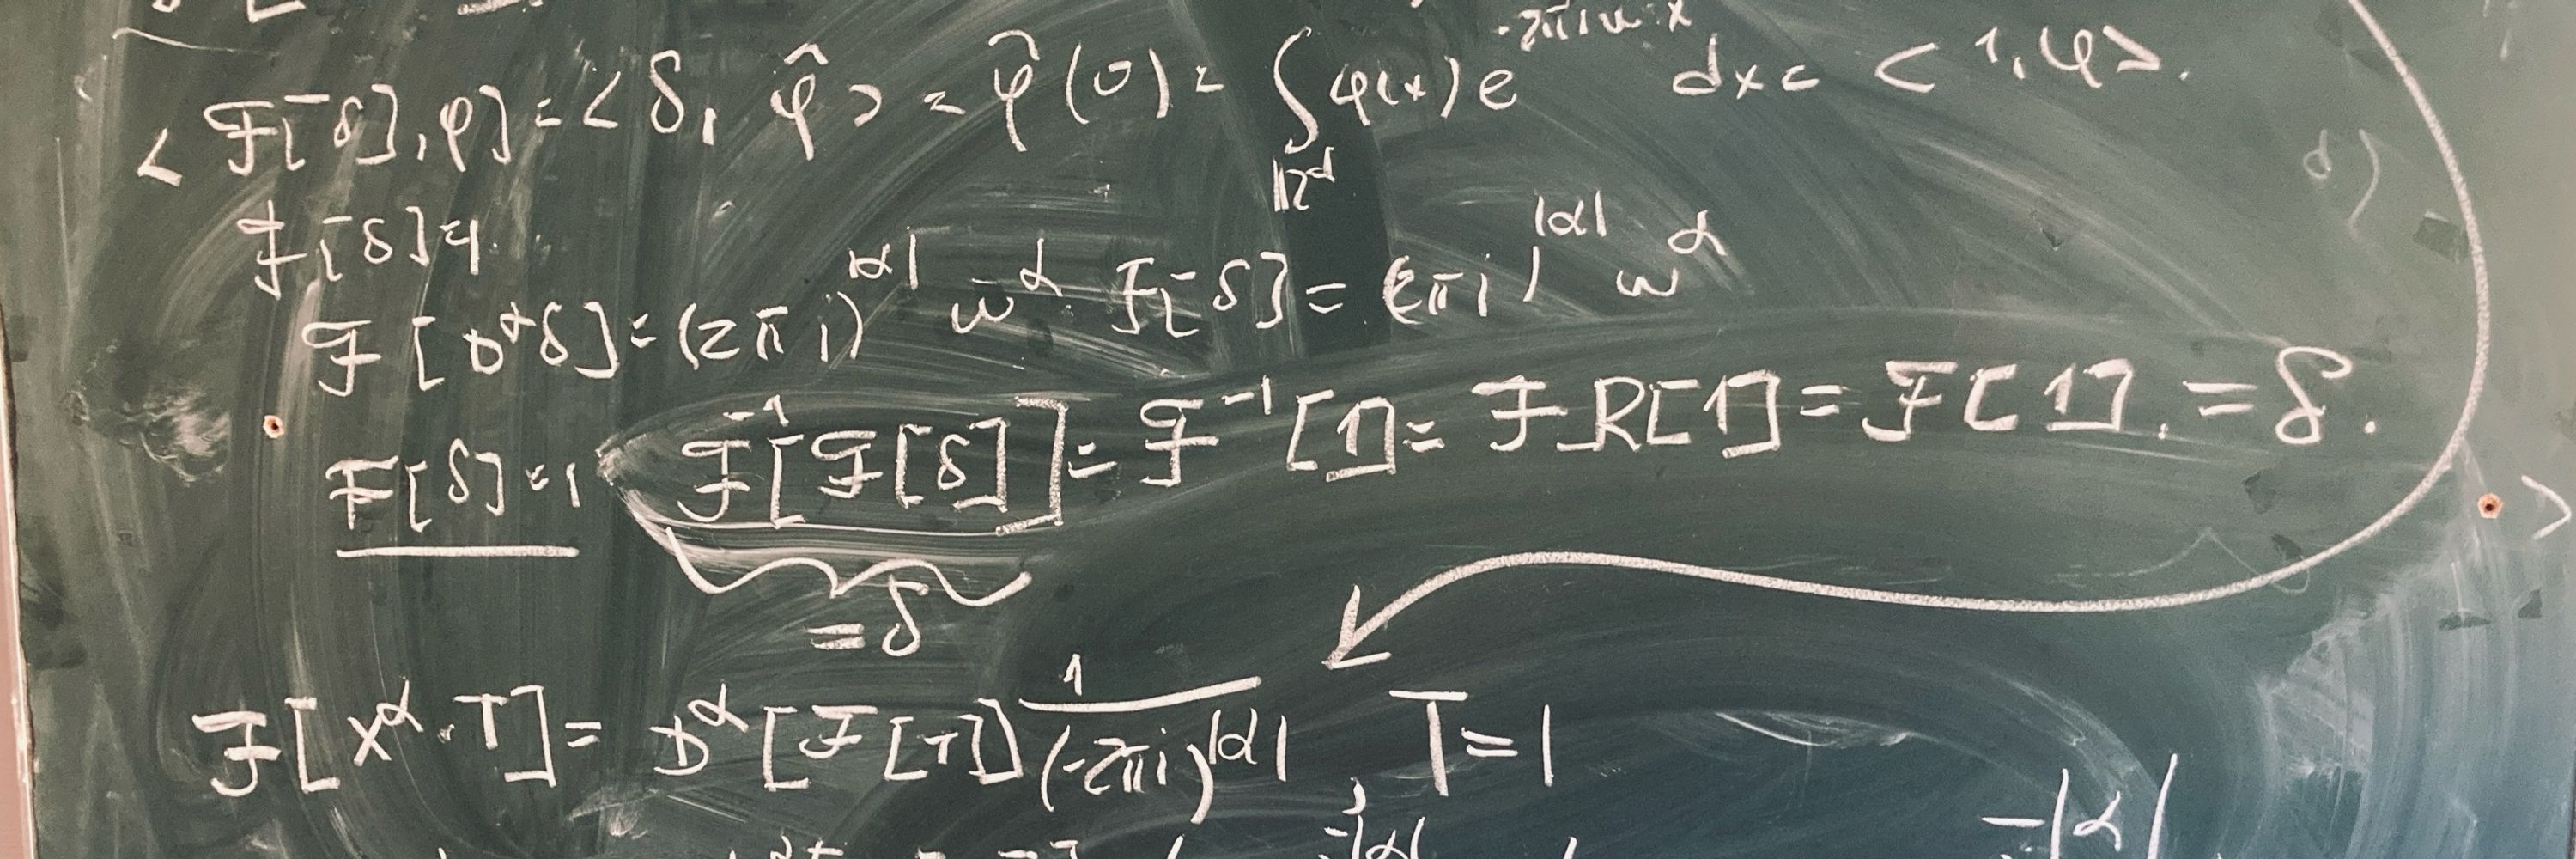 < F[δ], φ] = < δ, φ̂ > = φ̂(0) = ∫_{ℝ^d} φ(x) e^{-2πiω·x} dx = < 1, φ >.
F[δ] = 1.
F[D^α δ] = (2πi)^{|α|} ω^α · F[δ] = (2πi)^{|α|} ω^α
F[δ] = 1 F^{-1}[F[δ]] = F^{-1}[1] = F R[1] = F[1]. = δ.
= δ
F[x^α · T] = D^α [F[T]] 1/(-2πi)^{|α|} T = 1
-|α|